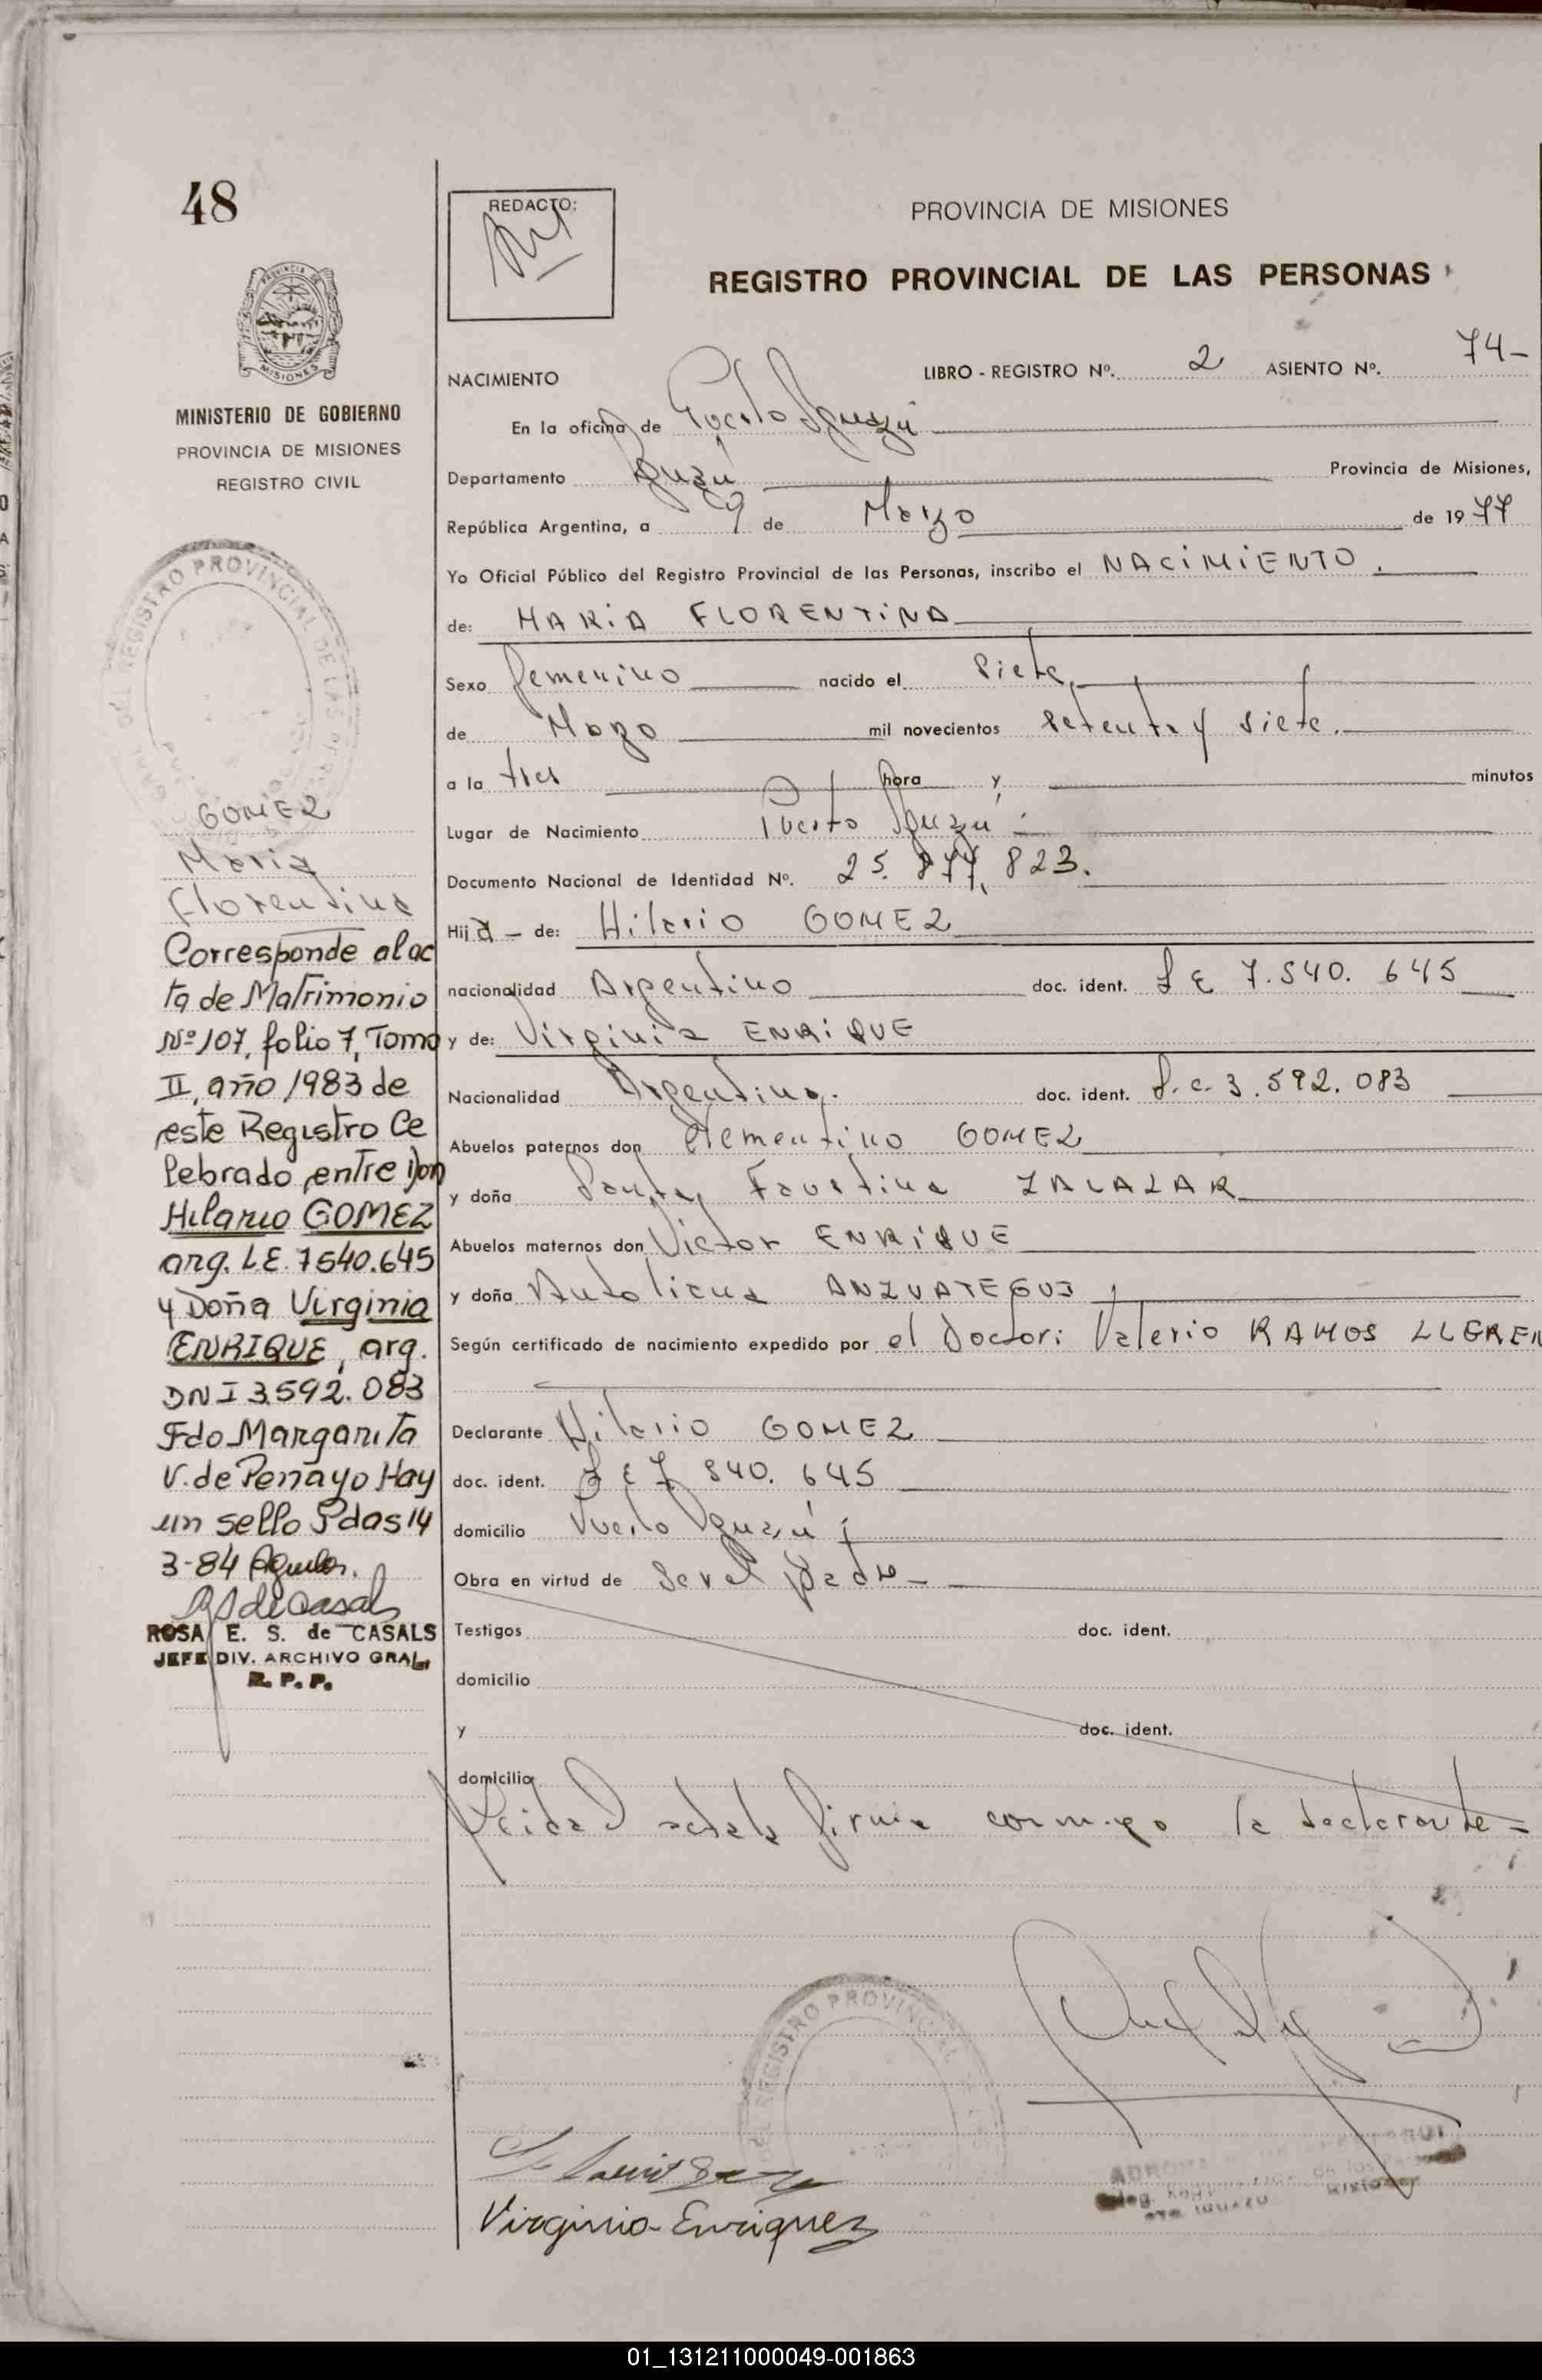 48
REDACTO:
PROVINCIA DE MISIONES
REGISTRO PROVINCIAL DE LAS PERSONAS
PROVINCIA DE
MISIONES
MINISTERIO DE GOBIERNO
PROVINCIA DE MISIONES
REGISTRO CIVIL
REGISTRO PROVINCIAL DE LAS
GOMEZ
Maria
Florentina
Corresponde al ac
ta de Matrimonio
Nº 107, folio 7, Tomo
II, año 1983 de
este Registro Ce
lebrado entre Don
Hilario GOMEZ
arg. L.E. 7540.645
y Doña Virginia
ENRIQUE, arg.
DNI 3.592.083
Fdo Margarita
V. de Penayo Hay
un sello Pdas 14
3-84
ROSA E. S. de CASALS
JEFE DIV. ARCHIVO GRAL.
R. P. P.
NACIMIENTO LIBRO - REGISTRO Nº. 2 ASIENTO Nº. 74-
En la oficina de Puerto Iguazú
Departamento Iguazú Provincia de Misiones,
República Argentina, a de Marzo de 1977
Yo Oficial Público del Registro Provincial de las Personas, inscribo el NACIMIENTO.
de: MARIA FLORENTINA
Sexo femenino nacido el siete,
de Marzo mil novecientos setenta y siete.
a la tres hora y minutos
Lugar de Nacimiento Puerto Iguazú
Documento Nacional de Identidad Nº. 25.877.823.
Hija - de: Hilario GOMEZ
nacionalidad Argentino doc. ident. L E 7.540.645
y de: Virginia ENRIQUE
Nacionalidad Argentina. doc. ident. L.c. 3.592.083
Abuelos paternos don Clementino GOMEZ
y doña Faustina ZALAZAR
Abuelos maternos don Victor ENRIQUE
y doña ANZUATEGUI
Según certificado de nacimiento expedido por el Doctor: Valerio RAMOS
Declarante Hilario GOMEZ
doc. ident. L E 7 540.645
domicilio Puerto Iguazú
Obra en virtud de ser el padre
Testigos doc. ident.
domicilio
y doc. ident.
domicilio
Leida el acta la firma conmigo la declarante =
REGISTRO PROVINCIAL
Virginio-Enriquez
01_131211000049-001863